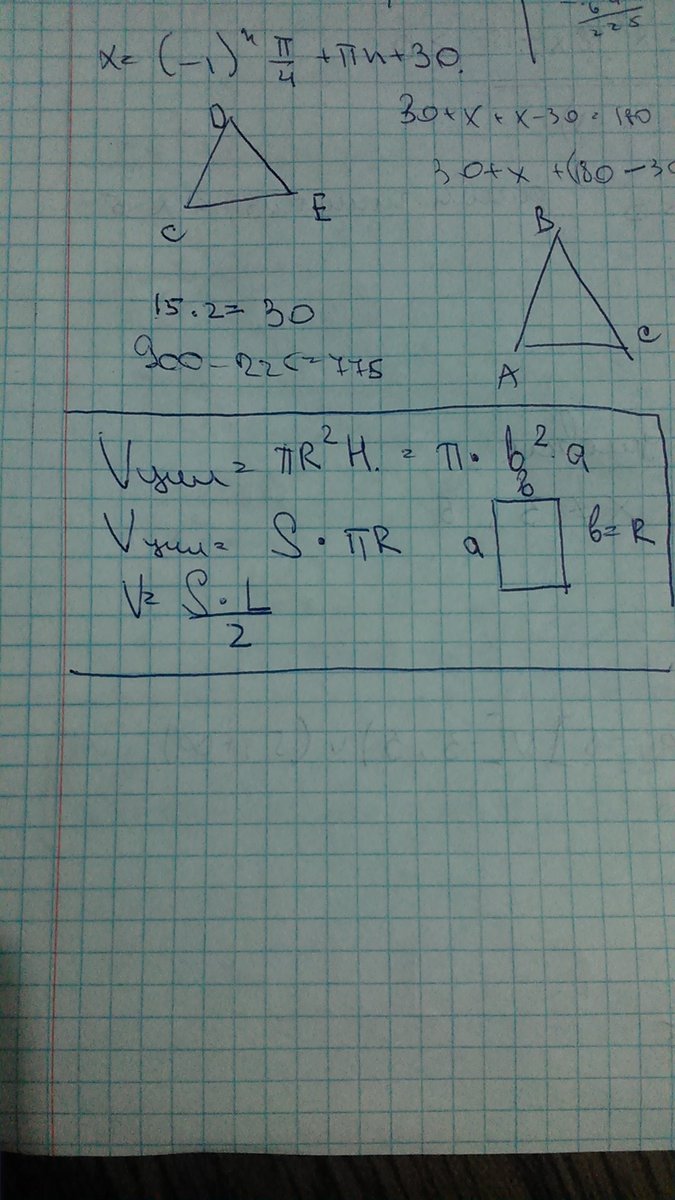 x = (-1)ⁿ π/4 + πn + 30.
225
30 + x + x - 30 = 180
30 + x + (180 - 30
D
C
E
B
A
C
15 · 2 = 30
900 - 225 = 775
Vцил = πR²H. = π · b² · a
b
Vцил = S · πR
a
b = R
V = S · L / 2